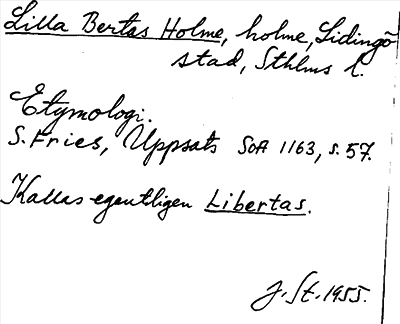 Lilla Bertas Holme, holme, Lidingö
stad, Sthlms l.
Etymologi.
S. Fries, Uppsats SOA 1163, s. 57.
Kallas egentligen Libertas.
J. St. 1955.